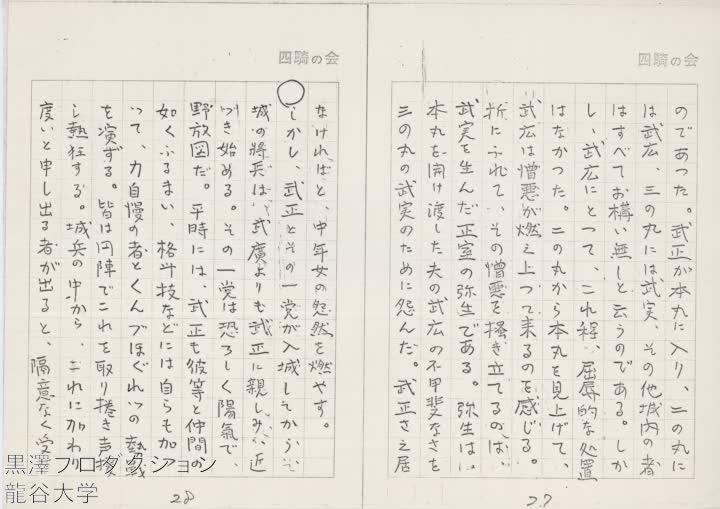 四騎の会
のであった。武正が本丸に入り、二の丸に
は武広、三の丸には武実、その他城内の者
はすべてお構い無しと云うのである。しか
し、武広にとって、これ程、屈辱的な処置
はなかった。二の丸から本丸を見上げて、
武広は憎悪が燃え上って来るのを感じる。
折にふれてい、その憎悪を掻き立てるのは、
武実を生んだ正室の弥生である。弥生は、
本丸を開け渡した夫の武広の不甲斐なさを
三の丸の武実のために怨んだ。武正さえ居
27
四騎の会
なければと、中年女の怨念を燃やす。
しかし、武正とその一党が入城してから、
城の將兵は、武廣よりも武正に親しみ、近
づき始める。その一党は恐ろしく陽氣で、
野放図だ。平時には、武正も彼等と仲間の
如くふるまい、格斗技などには自らも加わ
って、力自慢の者とくんづほぐれつの熱戦
を演ずる。皆は円陣でこれを取り捲き声援
し熱狂する。城兵の中から、これに加わり
度いと申し出る者が出ると、隔意なく受
28
黒澤プロダクション
龍谷大学